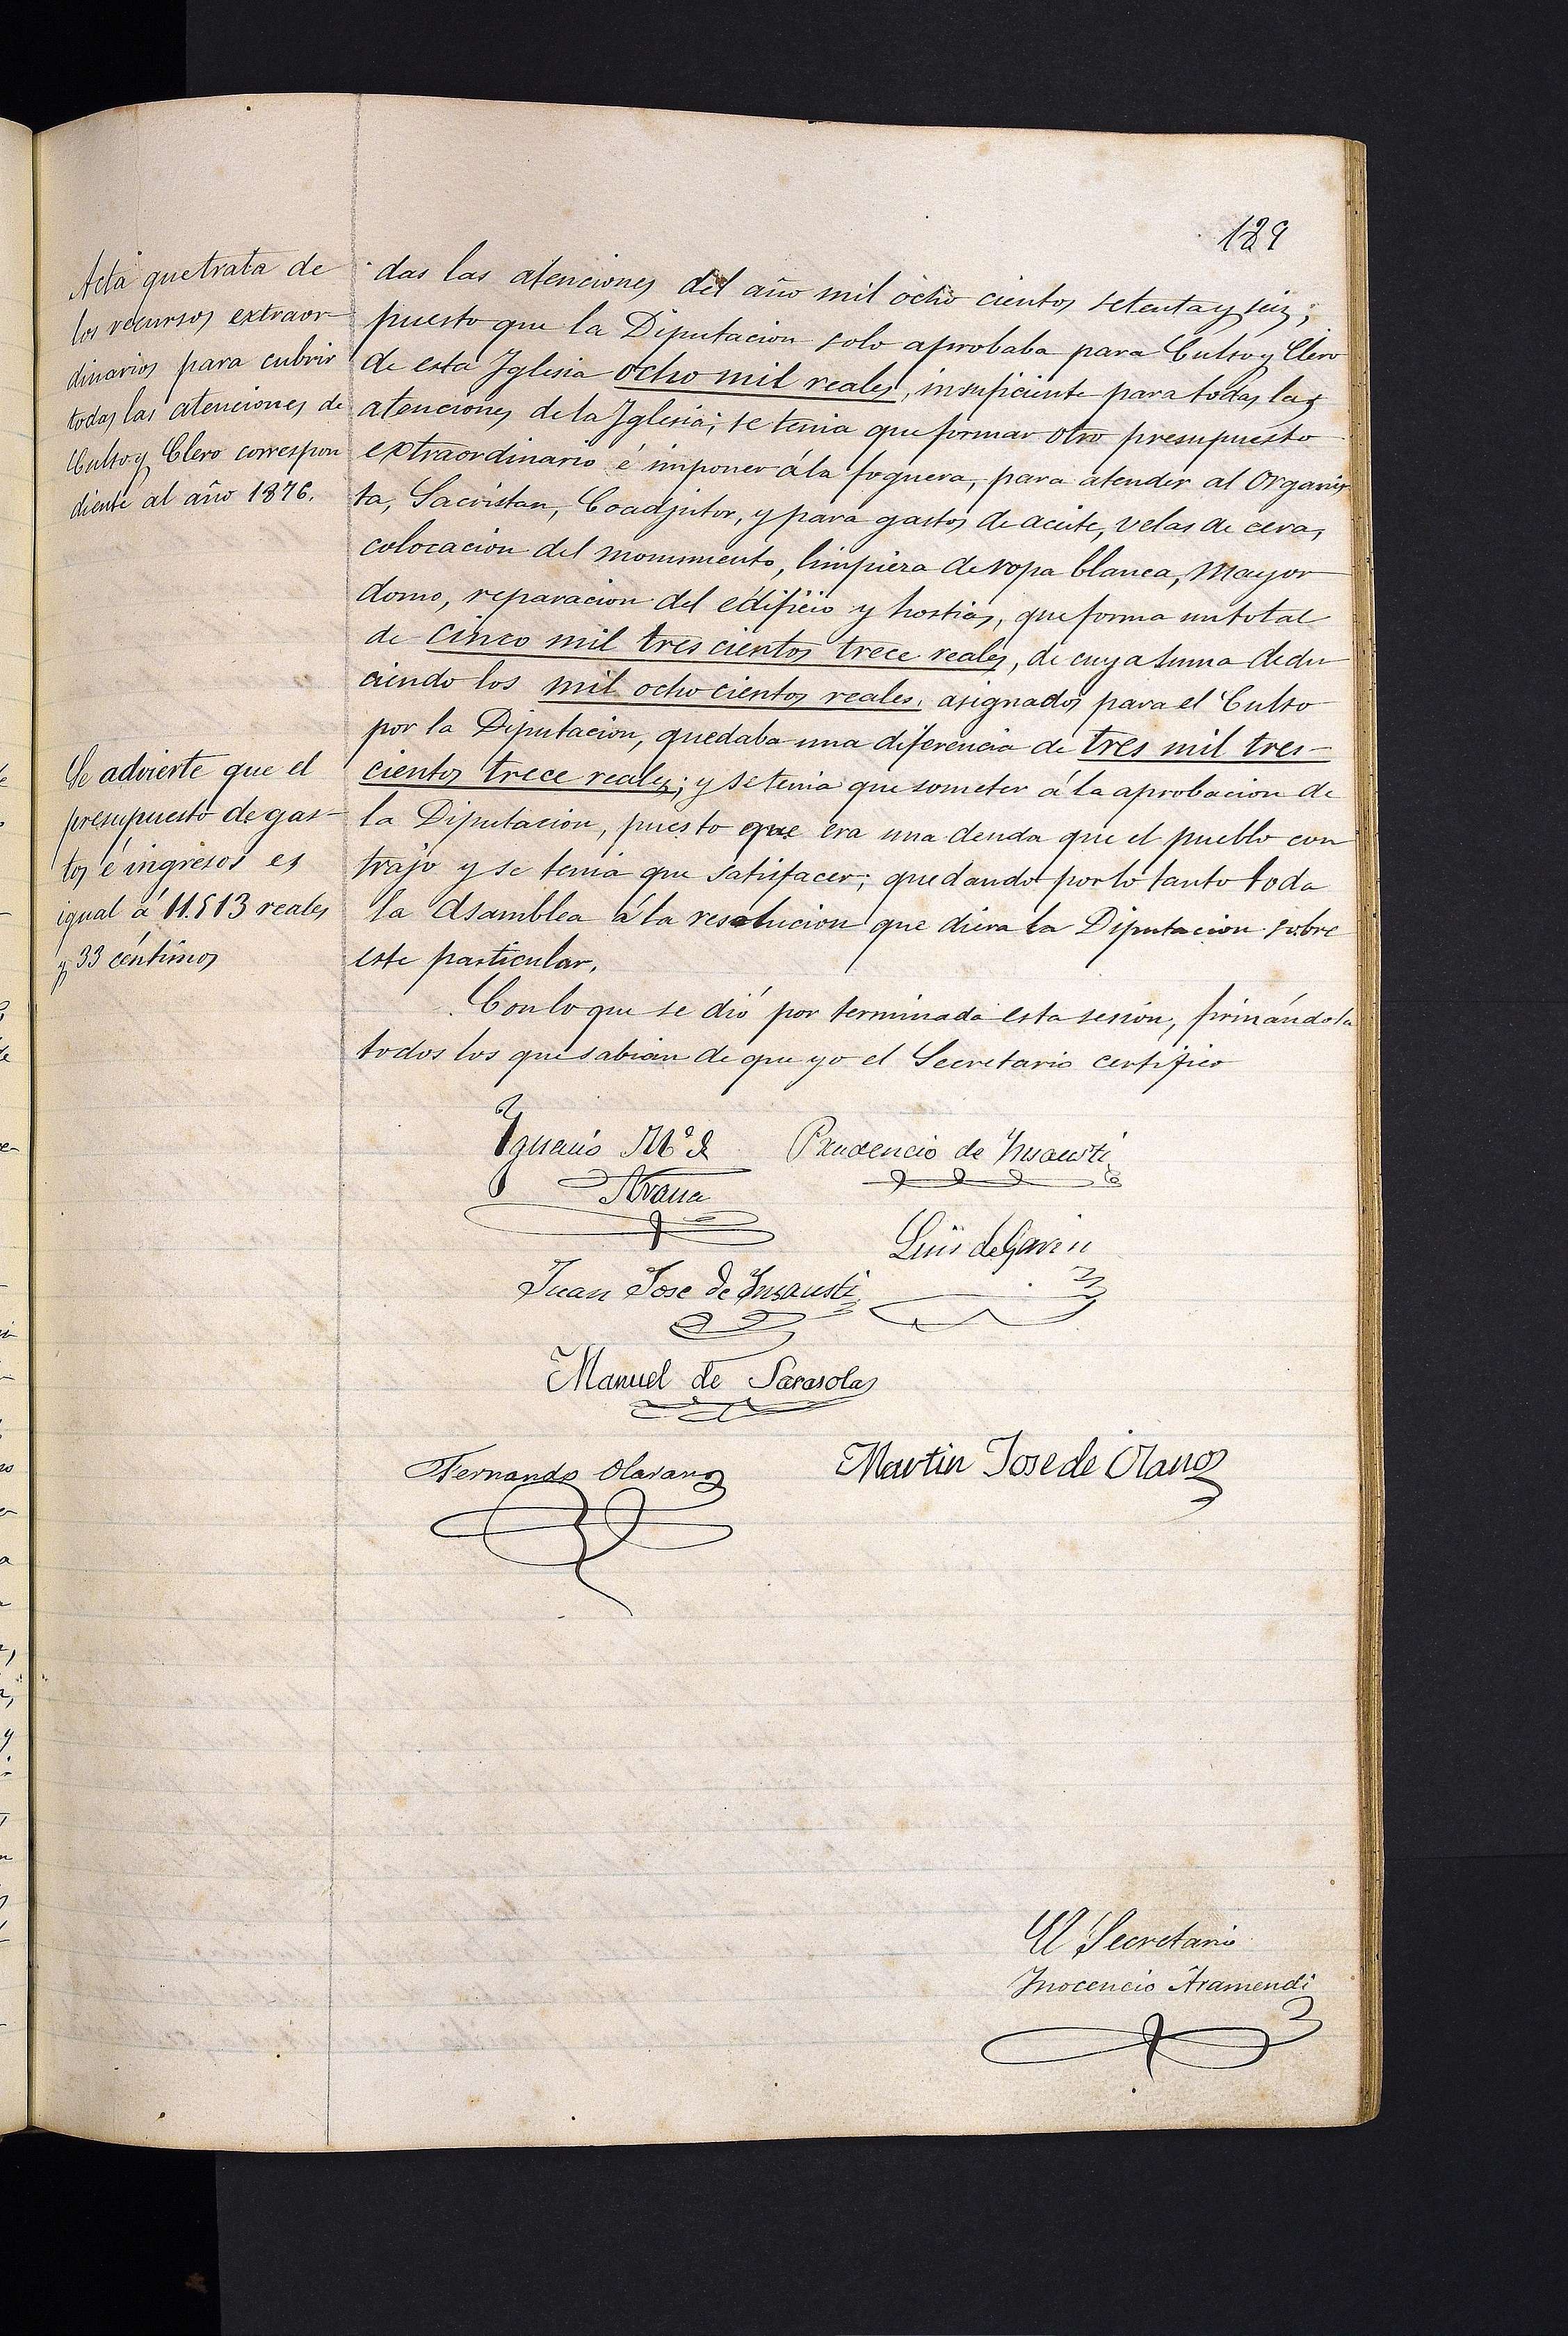 129
Acta que trata de
los recursos extraor-
dinarios para cubrir
todas las atenciones de
Culto y Clero correspon
diente al año 1876.
Se advierte que el
presupuesto de gas-
tos é ingresos es
igual á 11.513 reales
y 33 céntimos
das las atenciones del año mil ocho cientos setenta y seis;
puesto que la Diputacion solo aprobaba para Culto y Clero
de esta Iglesia ocho mil reales, insuficiente para todas las
atenciones de la Iglesia; se tenia que formar otro presupuesto
extraordinario é imponer á la foguera, para atender al Organis
ta, Sacristan, Coadjutor, y para gastos de aceite, velas de cera,
colocacion del monumento, limpieza de ropa blanca, Mayor
domo, reparacion del edificio y hostias, que forma un total
de cinco mil tres cientos trece reales, de cuya suma dedu
ciendo los mil ocho cientos reales, asignados para el Culto
por la Diputacion, quedaba una diferencia de tres mil tres-
cientos trece reales; y se tenia que someter á la aprobacion de
la Diputacion, puesto que era una deuda que el pueblo con
trajo y se tenia que satisfacer; quedando por lo tanto toda
la Asamblea á la resolucion que diera la Diputacion sobre
este particular.
Con lo que se dió por terminada esta sesión, firmándola
todos los que sabian de que yo el Secretario certifico
Ignacio Mª de
Arana
Prudencio de Insausti
Luis de
Juan Jose de Insausti
Manuel de Sarasola
Fernando Olarang
Martin Jose de Olano
El Secretario
Inocencio Aramendi